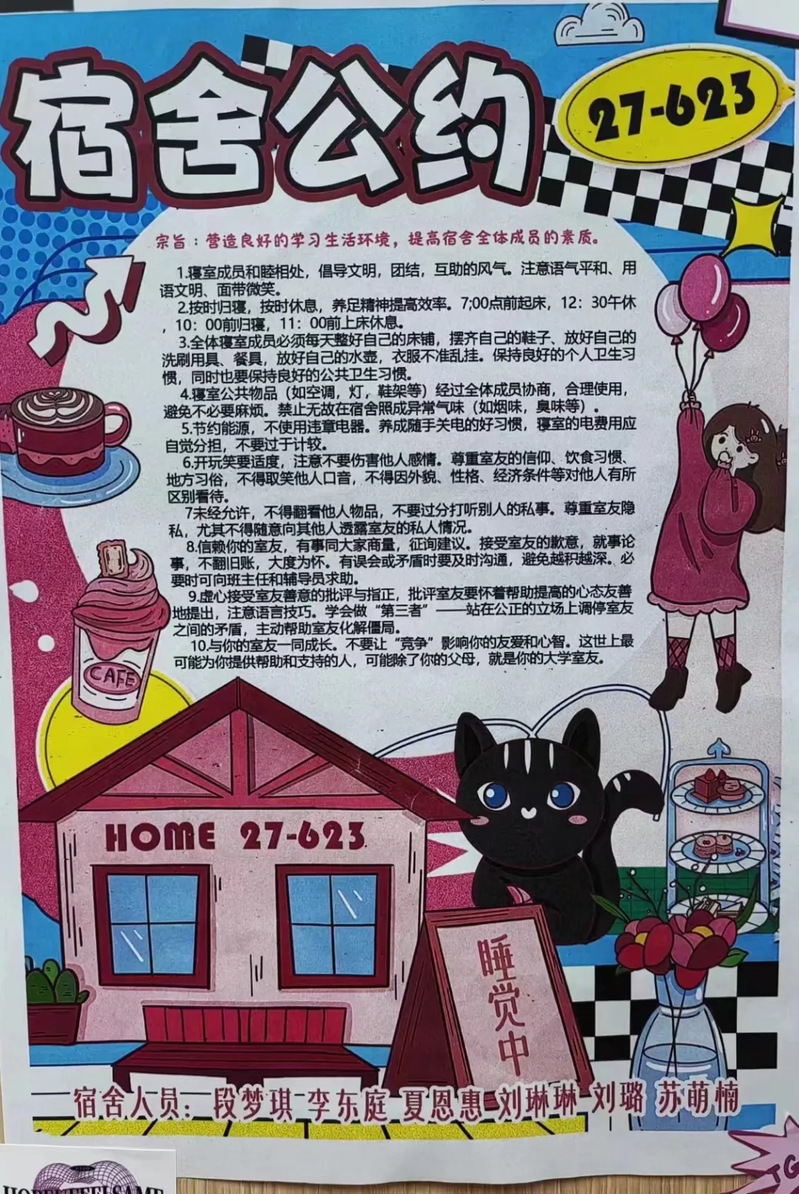 宿舍公约
27-623
宗旨：营造良好的学习生活环境，提高宿舍全体成员的素质。
1.寝室成员和睦相处，倡导文明，团结，互助的风气。注意语气平和、用
语文明、面带微笑。
2.按时归寝，按时休息，养足精神提高效率。7;00点前起床，12：30午休
，10：00前归寝，11：00前上床休息。
3.全体寝室成员必须每天整好自己的床铺，摆齐自己的鞋子、放好自己的
洗刷用具、餐具，放好自己的水壶，衣服不准乱挂。保持良好的个人卫生习
惯，同时也要保持良好的公共卫生习惯。
4.寝室公共物品（如空调，灯，鞋架等）经过全体成员协商，合理使用，
避免不必要麻烦。禁止无故在宿舍照成异常气味（如烟味，臭味等）。
5.节约能源，不使用违章电器。养成随手关电的好习惯，寝室的电费用应
自觉分担，不要过于计较。
6.开玩笑要适度，注意不要伤害他人感情。尊重室友的信仰、饮食习惯、
地方习俗，不得取笑他人口音，不得因外貌、性格、经济条件等对他人有所
区别看待。
7未经允许，不得翻看他人物品，不要过分打听别人的私事。尊重室友隐
私，尤其不得随意向其他人透露室友的私人情况。
8.信赖你的室友，有事同大家商量，征询建议。接受室友的歉意，就事论
事，不翻旧账，大度为怀。有误会或矛盾时要及时沟通，避免越积越深。必
要时可向班主任和辅导员求助。
9.虚心接受室友善意的批评与指正，批评室友要怀着帮助提高的心态友善
地提出，注意语言技巧。学会做“第三者”——站在公正的立场上调停室友
之间的矛盾，主动帮助室友化解僵局。
10.与你的室友一同成长。不要让“竞争”影响你的友爱和心智。这世上最
可能为你提供帮助和支持的人，可能除了你的父母，就是你的大学室友。
CAFE
HOME 27-623
睡觉中
宿舍人员：段梦琪 李东庭 夏恩惠 刘琳琳 刘璐 苏萌楠